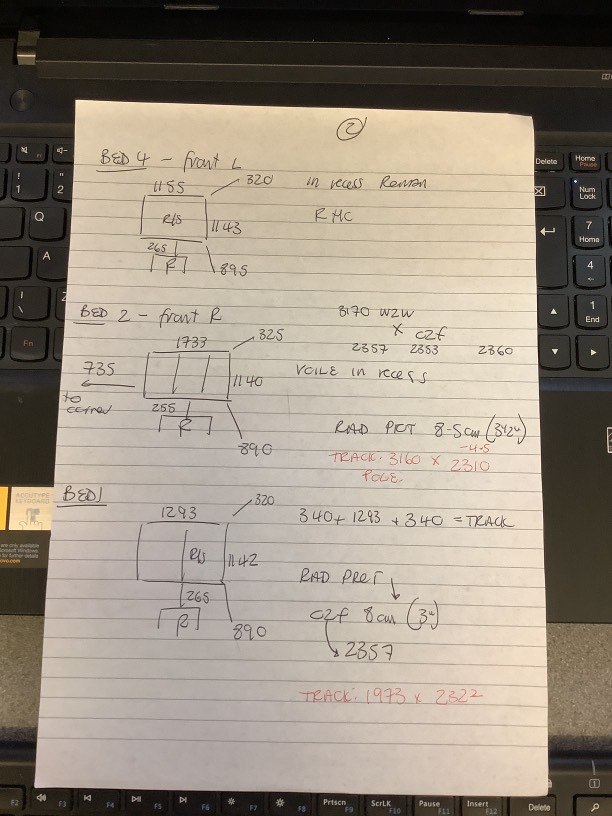 2
BED 4 - front L
1155
320
in recess Roman
R/S
1143
RHC
265
R
895
BED 2 - front R
3170 W2W
x c2f
1733
325
2357 2353 2360
735
1140
VOILE in recess
to corner
255
R
890
RAD PRCT 8-5cm (3½")
-4.5
TRACK: 3160 x 2310
POLE.
BED 1
1293
320
340 + 1293 + 340 = TRACK
R/S
1142
RAD PRCT
265
R
890
c2f 8cm (3")
2357
TRACK: 1973 x 2322
Delete
Home
Pause
Num
Lock
7
Home
4
1
End
!
1
"
2
Q
A
Z
\
Fn
ACCUTYPE
KEYBOARD
F2
F3
F4
F5
F6
F7
F8
Prtscn
F9
ScrLK
F10
Pause
F11
Insert
F12
Delete